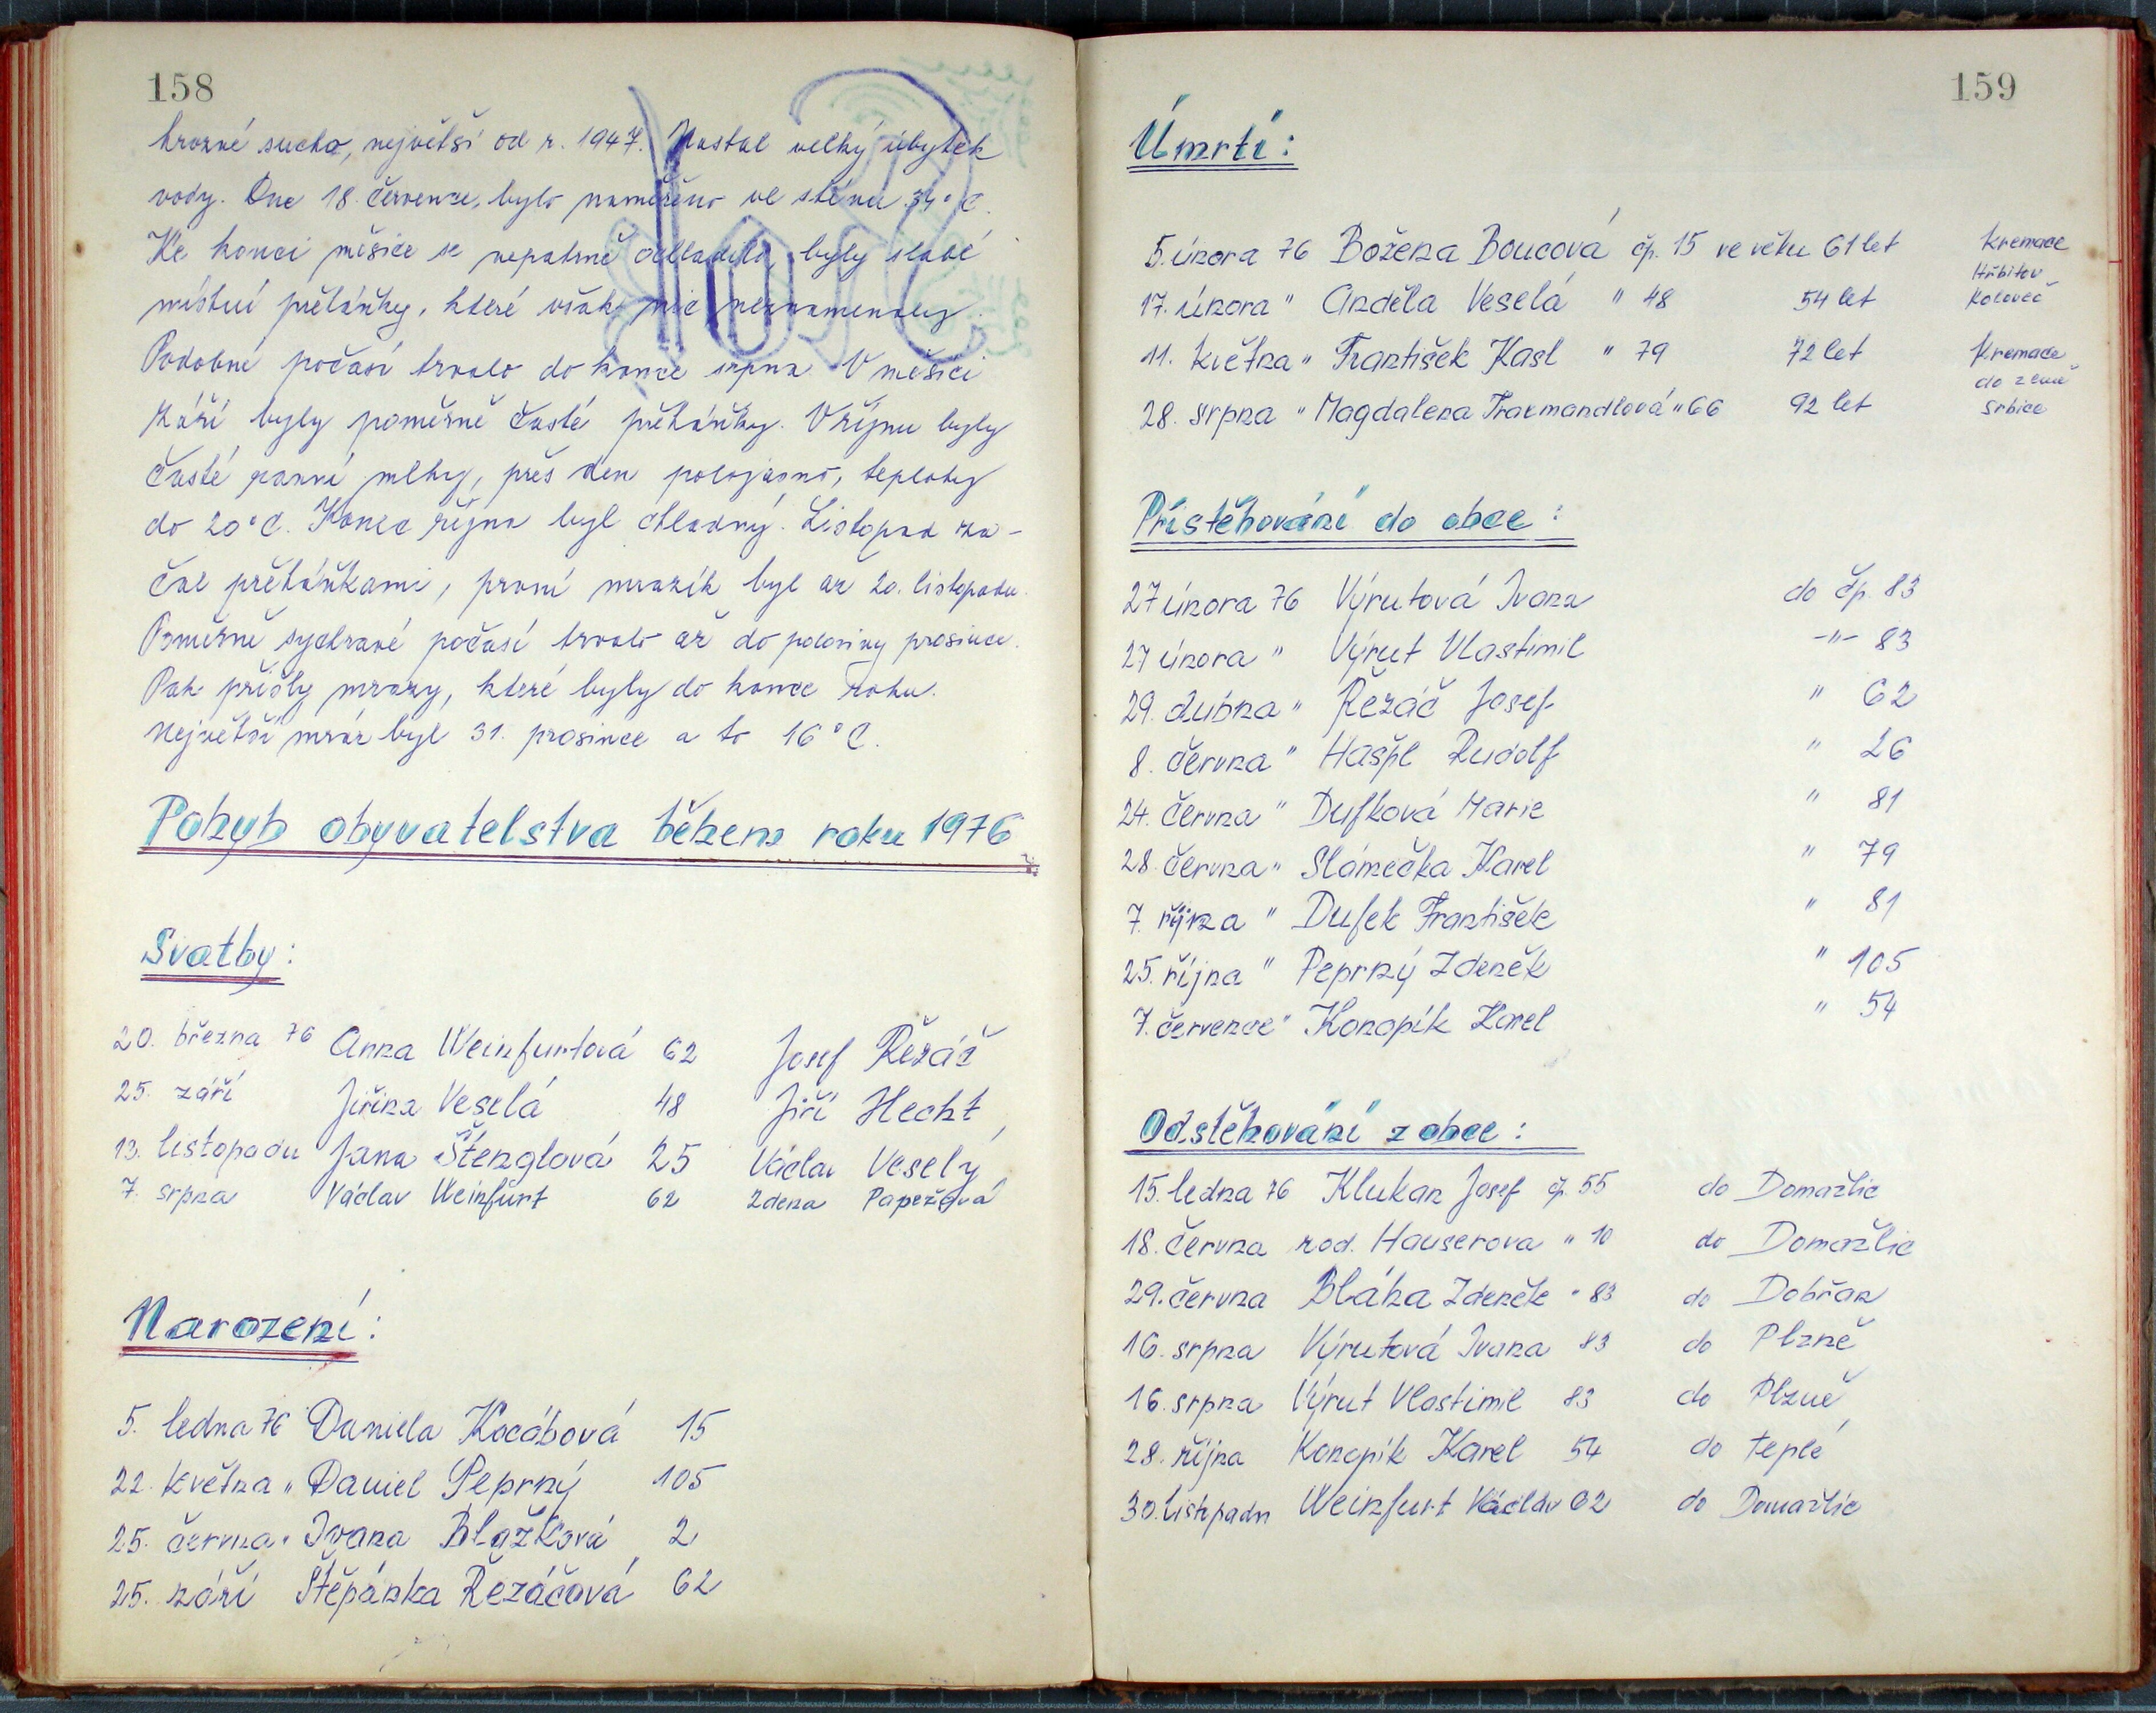 158
hrozné sucho, největší od r. 1947. Nastal velký úbytek
vody. Dne 18. července, bylo naměřeno ve stínu 34°C.
Ke konci měsíce se nepatrně ochladilo, byly slabé
místní přeháňky, které však nic neznamenaly.
Podobné počasí trvalo do konce srpna. V měsíci
Září byly poměrně časté přeháňky. V říjnu byly
časté ranní mlhy, přes den polojasno, teploty
do 20°C. Konec října byl chladný. Listopad za-
čal přeháňkami, první mrazík byl až 20. listopadu.
Poměrně sychravé počasí trvalo až do poloviny prosince.
Pak přišly mrazy, které byly do konce roku.
Největší mráz byl 31. prosince a to 16°C.
Pohyb obyvatelstva během roku 1976
Svatby:
20. března 76 Anna Weinfurtová 62 Josef Řezáč
25. září Jiřina Veselá 48 Jiří Hecht
13. listopadu Jana Štenglová 25 Václav Veselý
7. srpna Václav Weinfurt 62 Zdena Papežová
Narození:
5. ledna 76 Daniela Kocábová 15
22. května " Daniel Peprný 105
25. června " Ivana Blažková 2
25. září Štěpánka Řezáčová 62
159
Úmrtí:
5. února 76 Božena Boucová čp. 15 ve věku 61 let kremace
17. února " Anděla Veselá " 48 54 let Hřbitov Koloveč
11. května " František Kasl " 79 72 let Kremace
28. srpna " Magdalena " 66 92 let do země Srbice
Přistěhování do obce:
27 února 76 Výrutová Ivana do čp. 83
27 února " Výrut Vlastimil -"- 83
29. dubna " Řezáč Josef " 62
8. června " Hašpl Rudolf " 26
24. června " Dufková Marie " 81
28. června " Slámečka Karel " 79
7. října " Dufek František " 81
25. října " Peprný Zdeněk " 105
7. července " Konopík Karel " 54
Odstěhování z obce:
15. ledna 76 Klukan Josef čp. 55 do Domažlic
18. června rod. Hauserova " 10 do Domažlic
29. června Bláha Zdeněk " 83 do Dobřan
16. srpna Výrutová Ivana 83 do Plzně
16. srpna Výrut Vlastimil 83 do Plzně
28. října Konopík Karel 54 do Teplé
30. listopadu Weinfurt Václav 62 do Domažlic